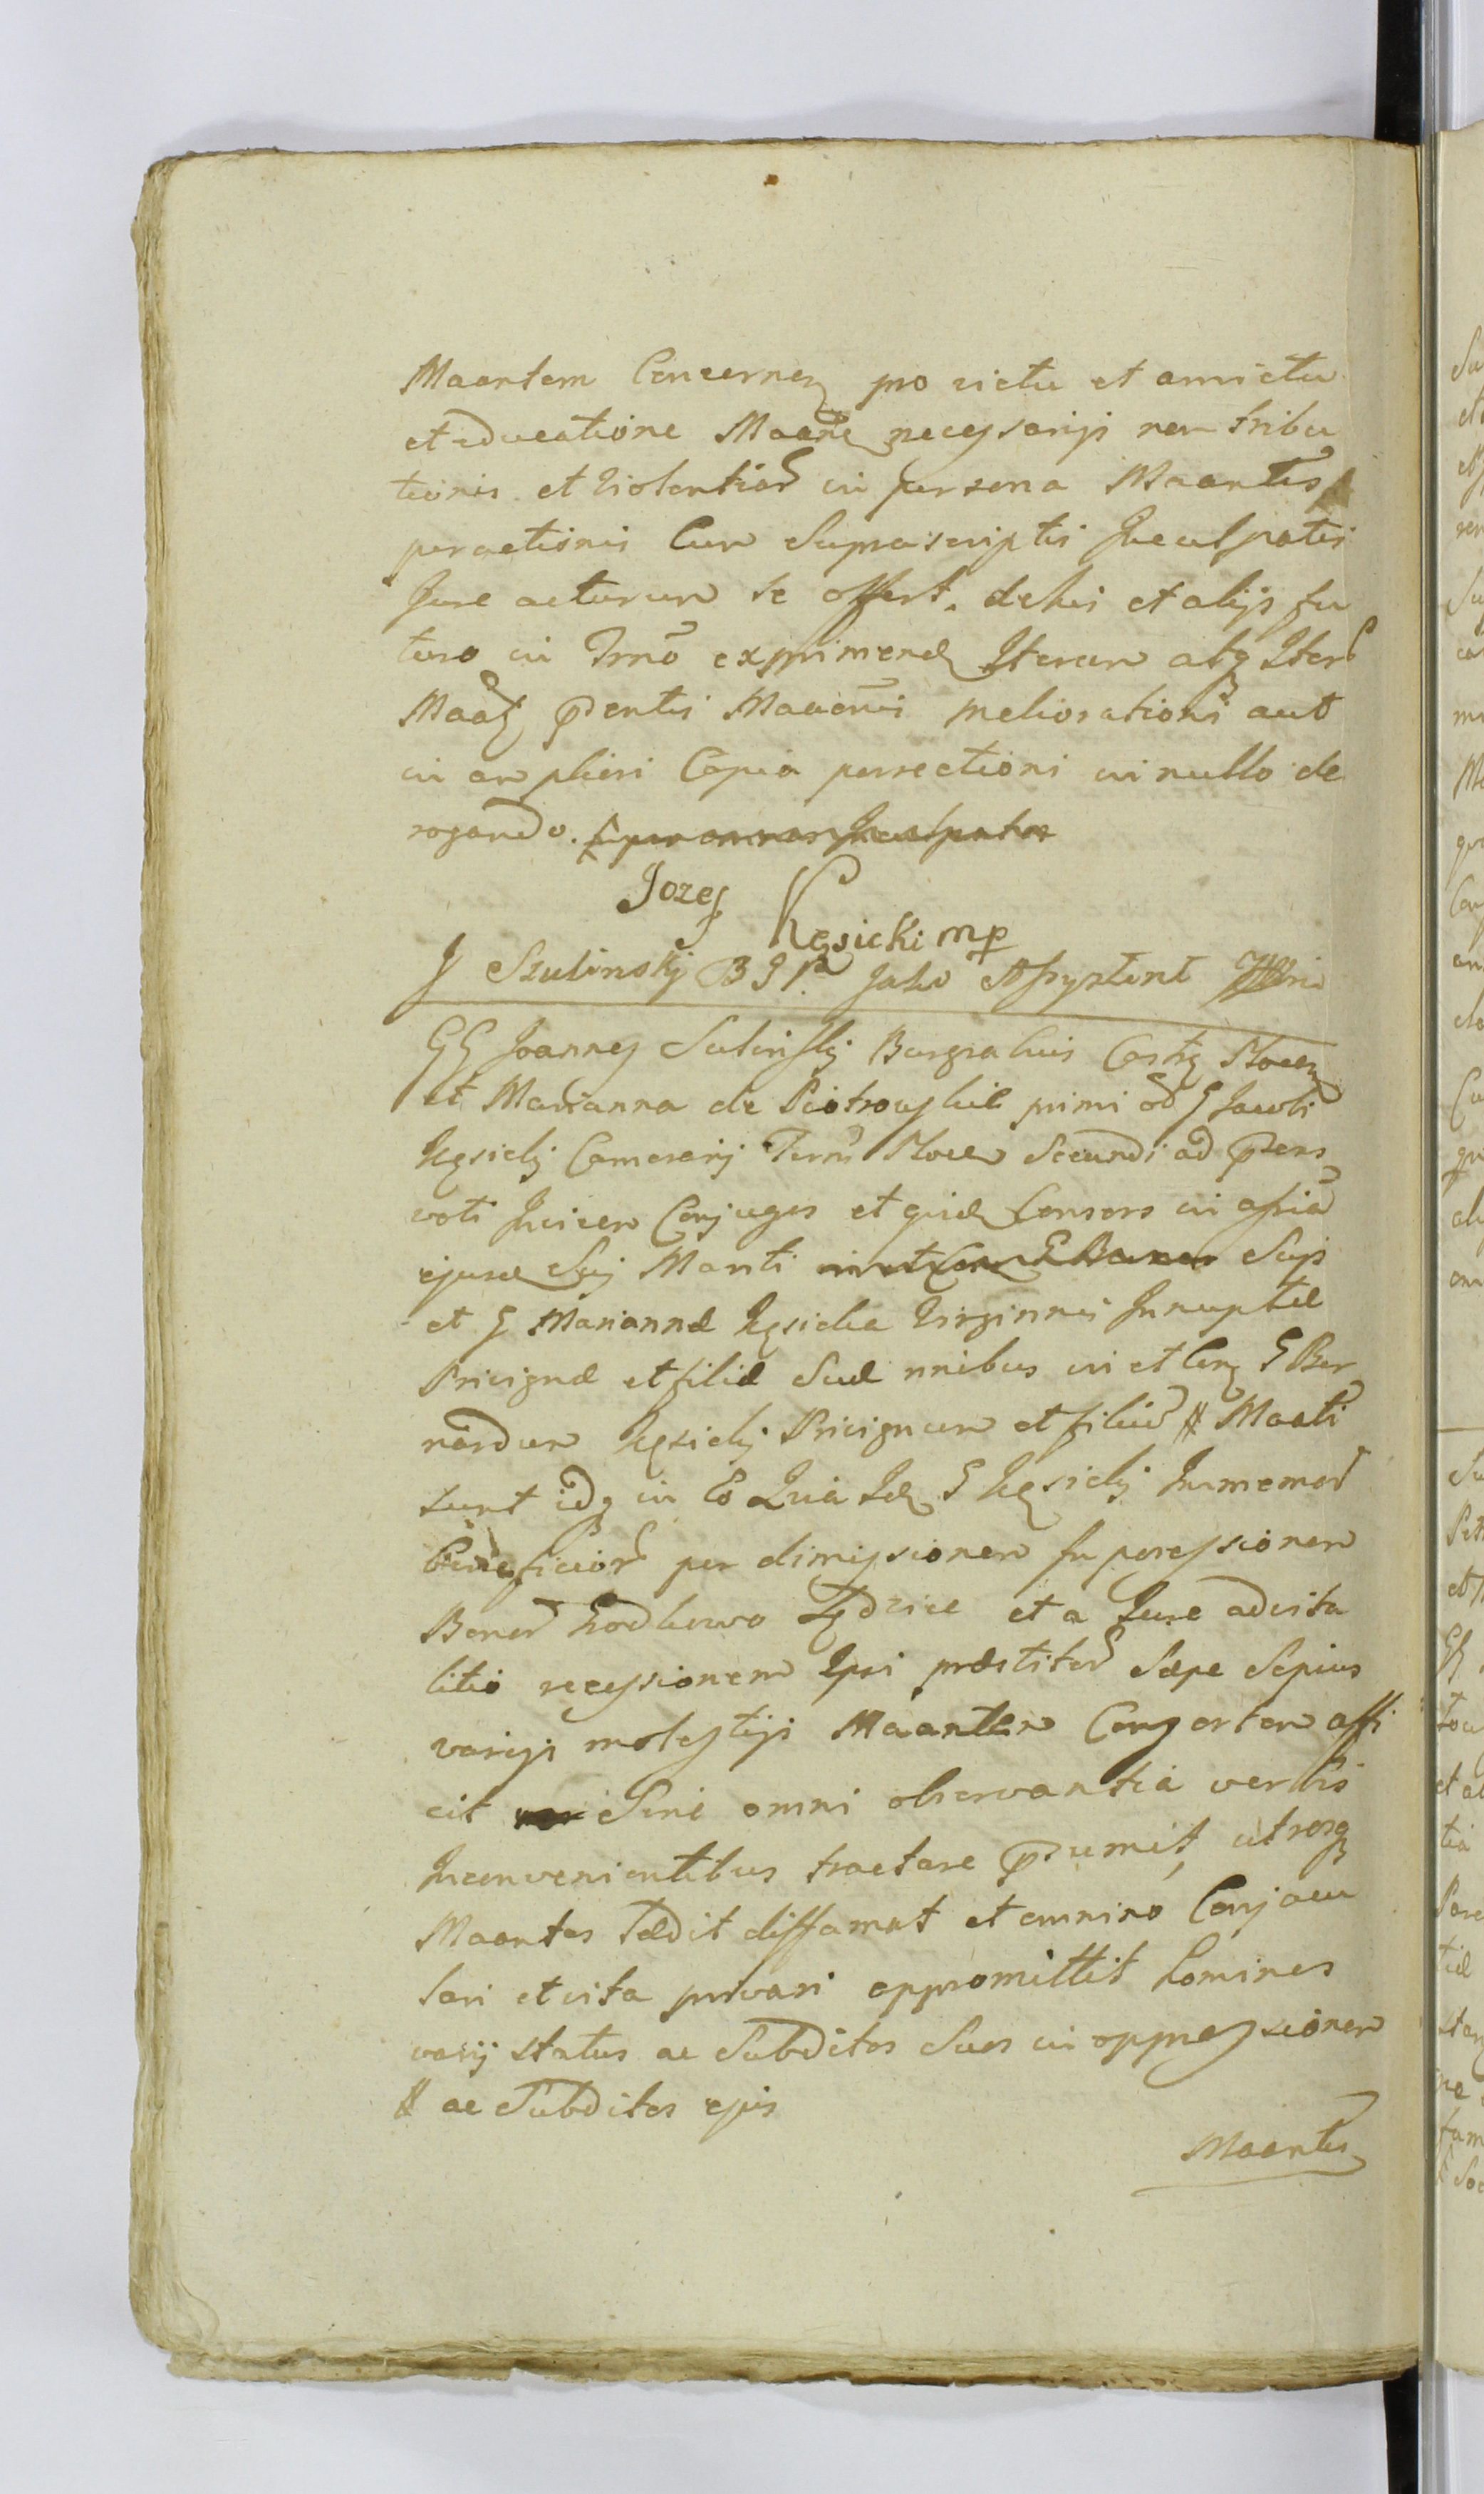 Maantem Concernen pro victu et amictu
et educatione Maane necessarijs non tribu
tionis et violentiar in persona Maantis
peractionis Cum Suprascriptis Inculpatis
Jure acturum se offert. de his et alijs fu
turo in Trno exprimend Iterum atq Iter
Maatq pntis Maaonis meliorationi aut
in ampliori Copia porrectioni in nullo de
rogando.
Jozef Kęsicki mp
J Szulinski B G P jako Assystent
GG Joannes Sulinskj Burgrabius Castr Plocen
et Marianna de Piotrowskie primi ad G Jacobi
Kęsickj Camerarij Terris Plocen Secundi ad praens
voti Invicem Conjuges et quid Consors in assia
ejusd Sui Mariti Suis
et G Mariannæ Kęsicka Virginnis Innuptæ
Privignæ et filiæ Suæ nnibus in et Con G Ber
nardum Kęsickj Privignum et filiu # Maati
sunt idq in Eo Quia Id G Kęsickj Immemor
Beneficior per dimissionem In possessionem
Bonor et a Jure advita
litio recessionem Ipsi præstitor Sæpe Sepius
varijs molestijs Maantem Consortem affi
cit Sine omni observantia verbis
Inconvenientibus tractare præsumit, utrosq
Maantes Lædit diffamat et omnino Conjacu
lari et vita privari oppromittit homines
varij status ac Subditos Suos in oppressionem
# ac Subditos ejus
Maantis